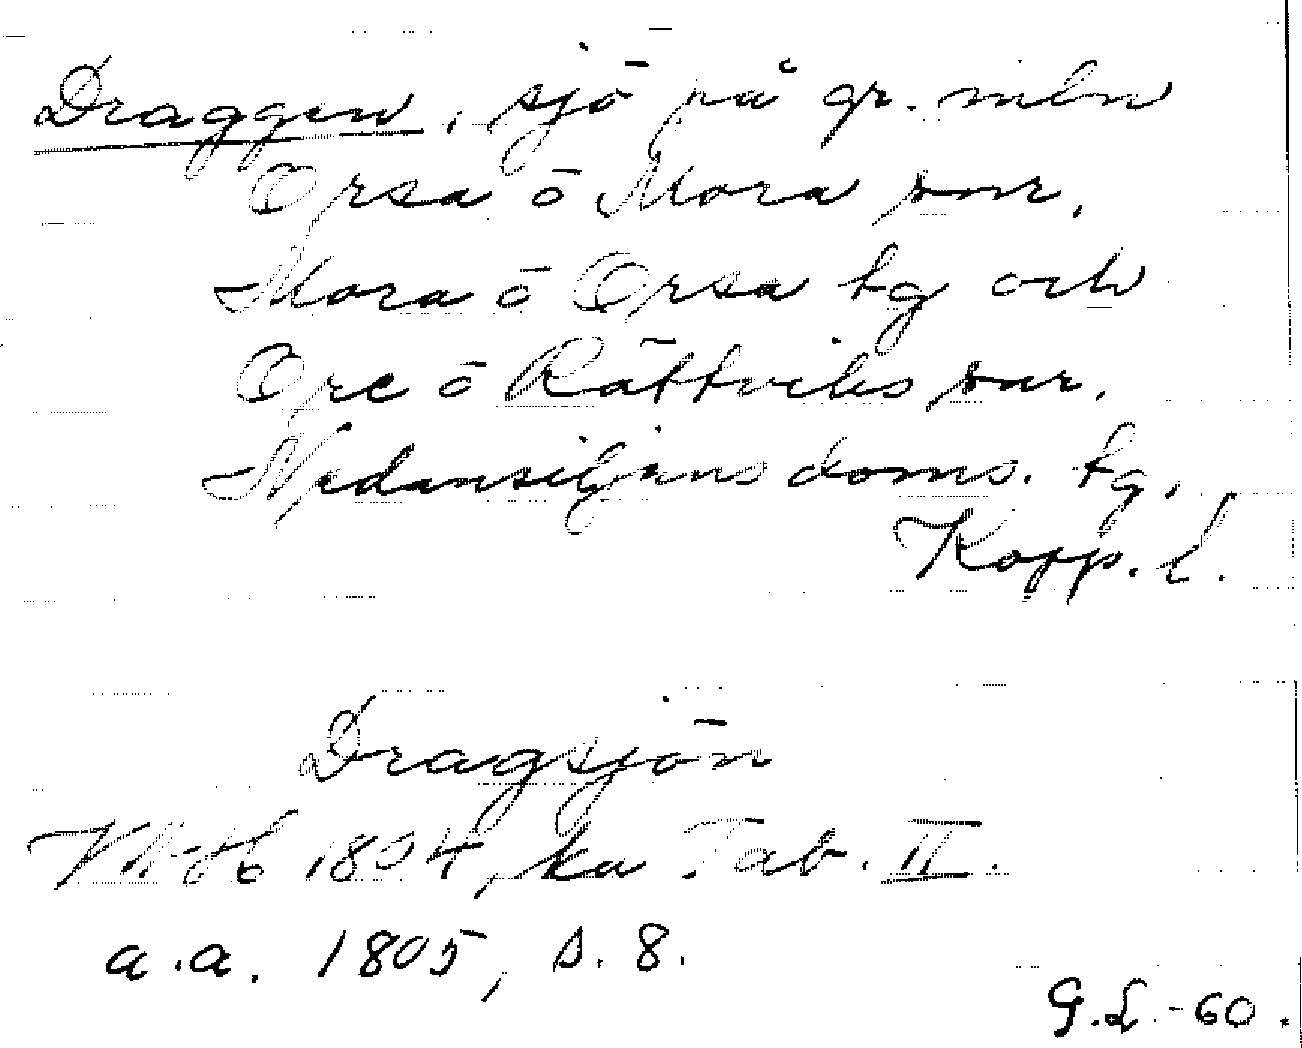 Draggen, sjö på gr. mln
Orsa o Mora snr,
Mora o Orsa tg och
Ore o Rättviks snr,
Nedansiljans doms. tg,
Kopp. l.
Dragsjön
VAH 1804, ka Tab. II.
a.a. 1805, s. 8.
G.L.-60.